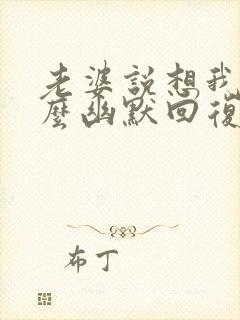 老婆説想我
麼幽默回復
布丁